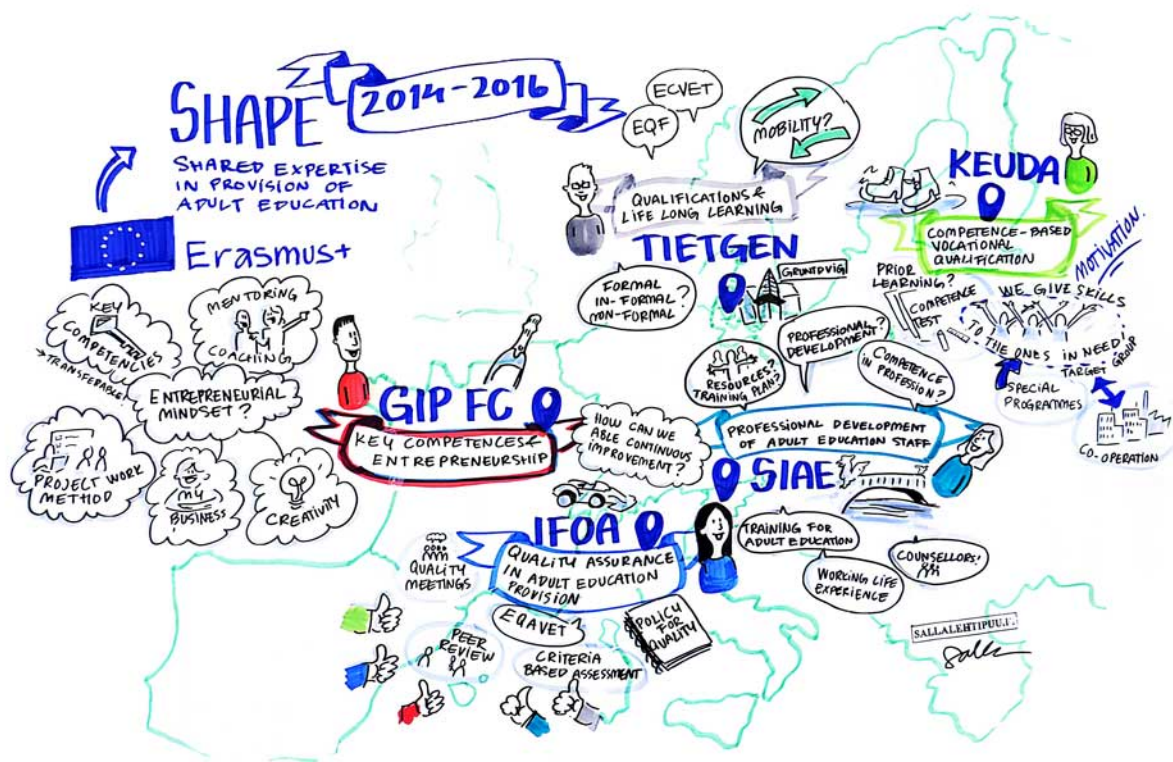 SHAPE
2014-2016
SHARED EXPERTISE
IN PROVISION OF
ADULT EDUCATION
Erasmus+
KEY
COMPETENCIES
→TRANSFERABLE!
MENTORING
COACHING
ENTREPRENEURIAL
MINDSET?
PROJECT WORK
METHOD
BUSINESS
CREATIVITY
GIP FC
KEY COMPETENCES &
ENTREPRENEURSHIP
ECVET
EQF
MOBILITY?
QUALIFICATIONS &
LIFE LONG LEARNING
TIETGEN
FORMAL
IN-FORMAL?
NON-FORMAL
GRUNTDVIG
PROFESSIONAL?
DEVELOPMENT?
RESOURCES?
TRAINING PLAN?
COMPETENCE
IN PROFESSION?
KEUDA
COMPETENCE-BASED
VOCATIONAL
QUALIFICATION
MOTIVATION.
PRIOR
LEARNING?
COMPETENCE
TEST
WE GIVE SKILLS
TO THE ONES IN NEED!
TARGET GROUP
SPECIAL
PROGRAMMES
CO-OPERATION
HOW CAN WE
ABLE CONTINUOUS
IMPROVEMENT?
PROFESSIONAL DEVELOPMENT
OF ADULT EDUCATION STAFF
SIAE
TRAINING FOR
ADULT EDUCATION
WORKING LIFE
EXPERIENCE
COUNSELLORS'
IFOA
QUALITY ASSURANCE
IN ADULT EDUCATION
PROVISION
QUALITY
MEETINGS
PEER
REVIEW
EQAVET?
CRITERIA
BASED ASSESSMENT
POLICY
FOR
QUALITY
SALLALEHTIPUU.FI
Salla